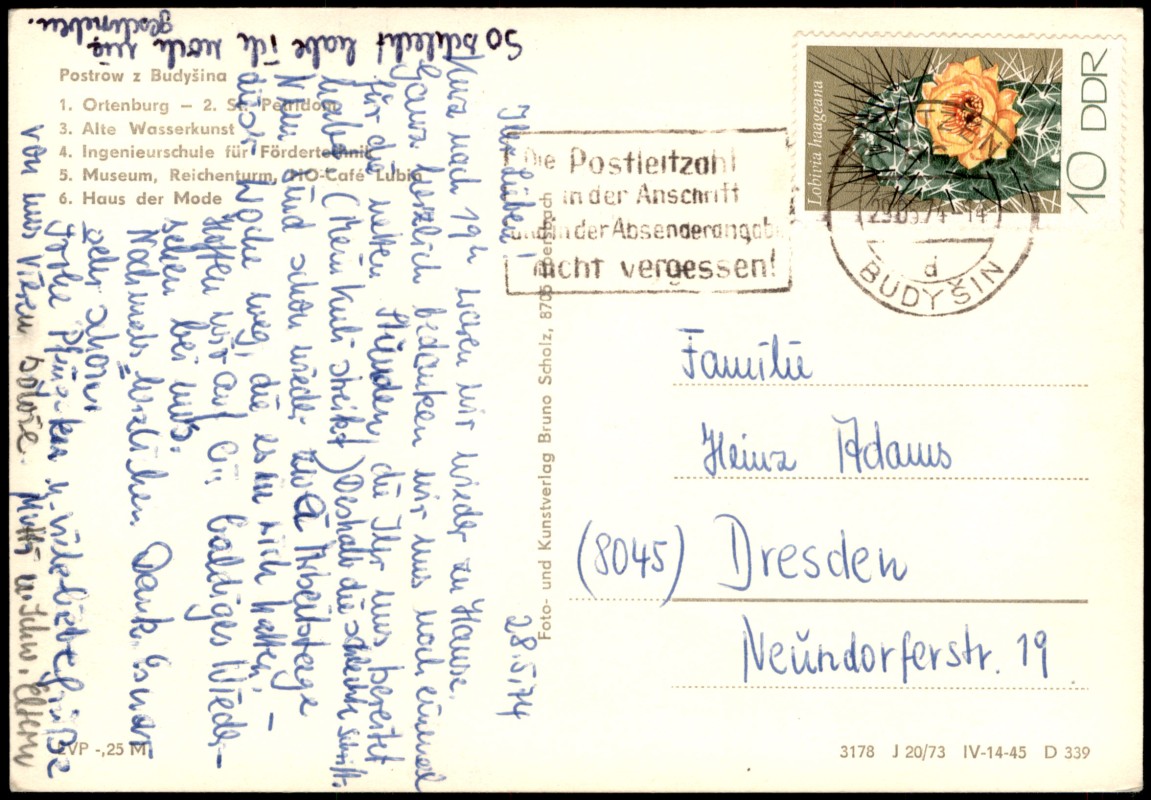 Postrow z Budyšina
1. Ortenburg – 2. St. Petridom
3. Alte Wasserkunst
4. Ingenieurschule für Fördertechnik
5. Museum, Reichenturm, HO-Café Lubin
6. Haus der Mode
EVP -,25 M
Foto- und Kunstverlag Bruno Scholz, 8705 Ebersbach
28.5.74
Ihr Lieben!
Kurz nach 19h waren wir wieder zu Hause.
Ganz herzlich bedanken wir uns noch einmal
für die netten Stunden, die Ihr uns bereitet
habt. (Mein Kuli streikt) Deshalb die schlechte Schrift.
Nun sind schon wieder zwei Arbeitstage
dieser Woche weg, die es in sich hatten.
Hoffen wir auf ein baldiges Wieder-
sehen bei uns.
Nochmals herzlichen Dank. Es war
sehr schön.
Frohe Pfingsten u. viele liebe Grüße
von uns vieren
Mutti u. Schw. Eltern
So schlecht habe ich noch nie
geschrieben.
Die Postleitzahl
in der Anschrift
und in der Absenderangabe
nicht vergessen!
Lobivia haageana
10 DDR
29.5.74-14
d
BUDYŠIN
Familie
Heinz Adams
(8045) Dresden
Neundorferstr. 19
3178 J 20/73 IV-14-45 D 339